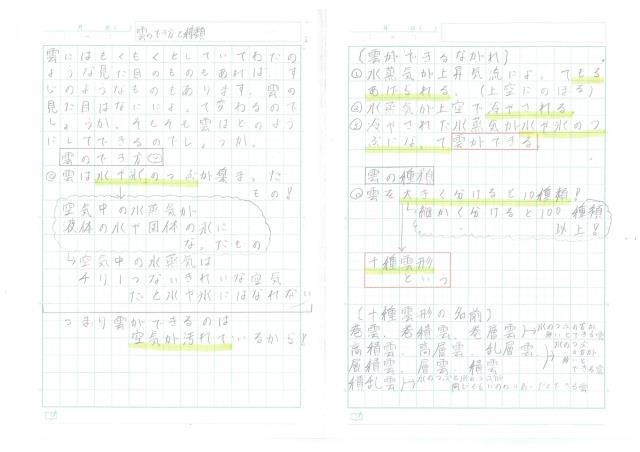 雲のでき方と種類
雲にはもくもくとしていてわたの
ような見た目のものもあれば、す
じのようなものもあります。雲の
見た目はなにによって変わるので
しょうか。そもそも雲はどのよう
にしてできるのでしょうか。
雲のでき方
◎雲は水や氷のつぶが集まった
もの!
空気中の水蒸気が
液体の水や固体の氷に
なったもの
↳空気中の水蒸気は
チリ1つないきれいな空気
だと水や氷にはなれない
つまり雲ができるのは
空気が汚れているから!
(雲ができるながれ)
①水蒸気が上昇気流によってもち
あげられる。(上空にのぼる)
②水蒸気が上空で冷やされる。
③冷やされた水蒸気が水や氷のつ
ぶになって雲ができる。
雲の種類
◎雲を大きく分けると10種類!
細かく分けると100種類
以上!
十種雲形
という
(十種雲形の名前)
巻雲、巻積雲、巻層雲
高積雲、高層雲、乱層雲
層積雲、層雲、積雲
積乱雲